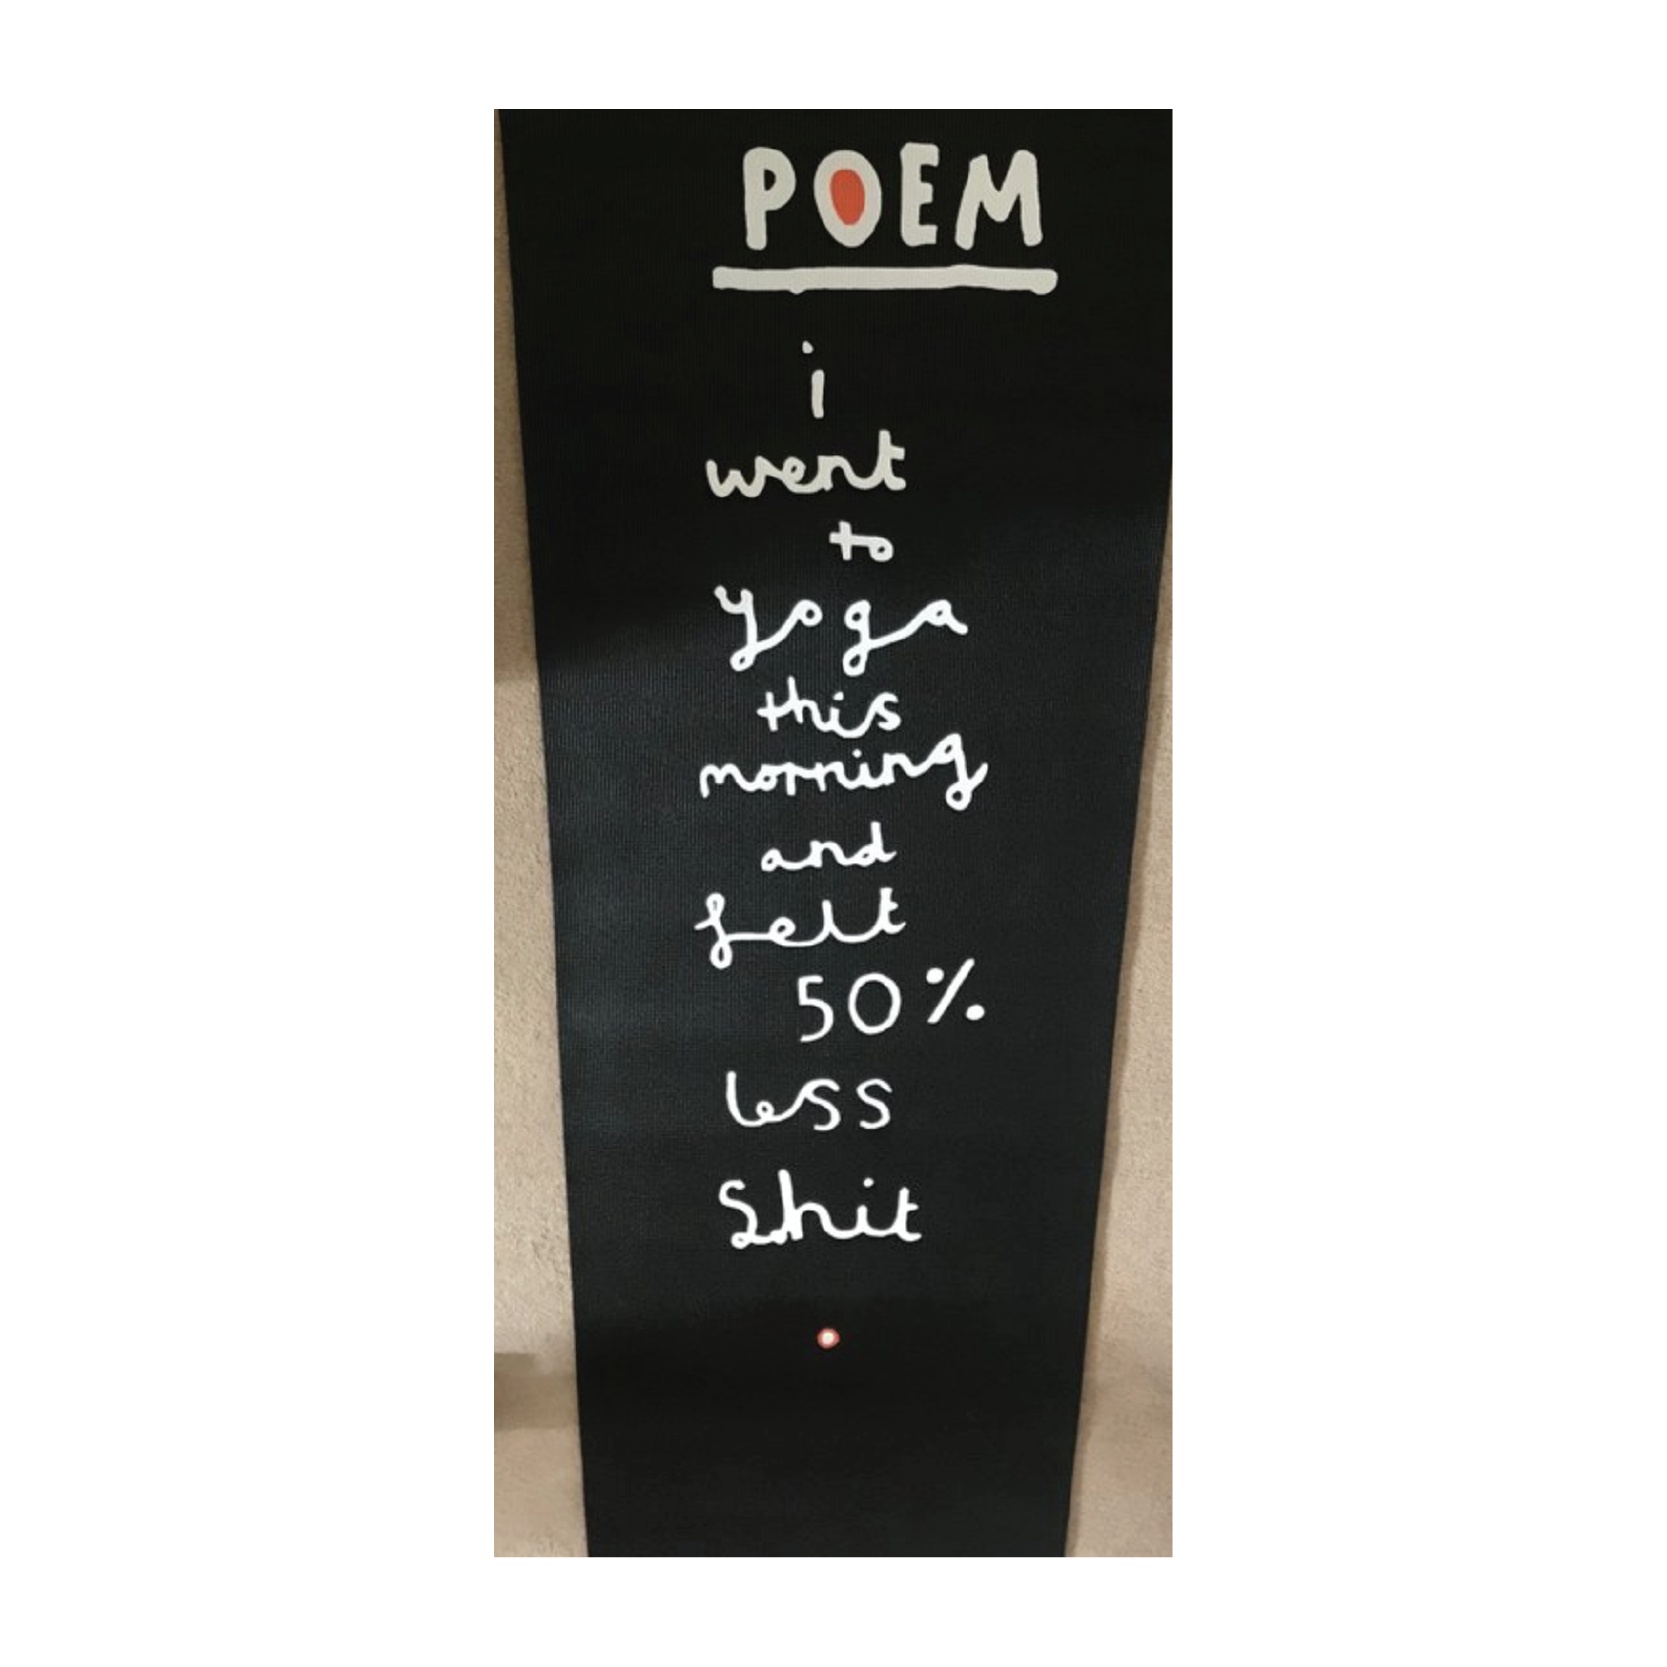 POEM
i
went
to
yoga
this
morning
and
felt
50%
less
Shit